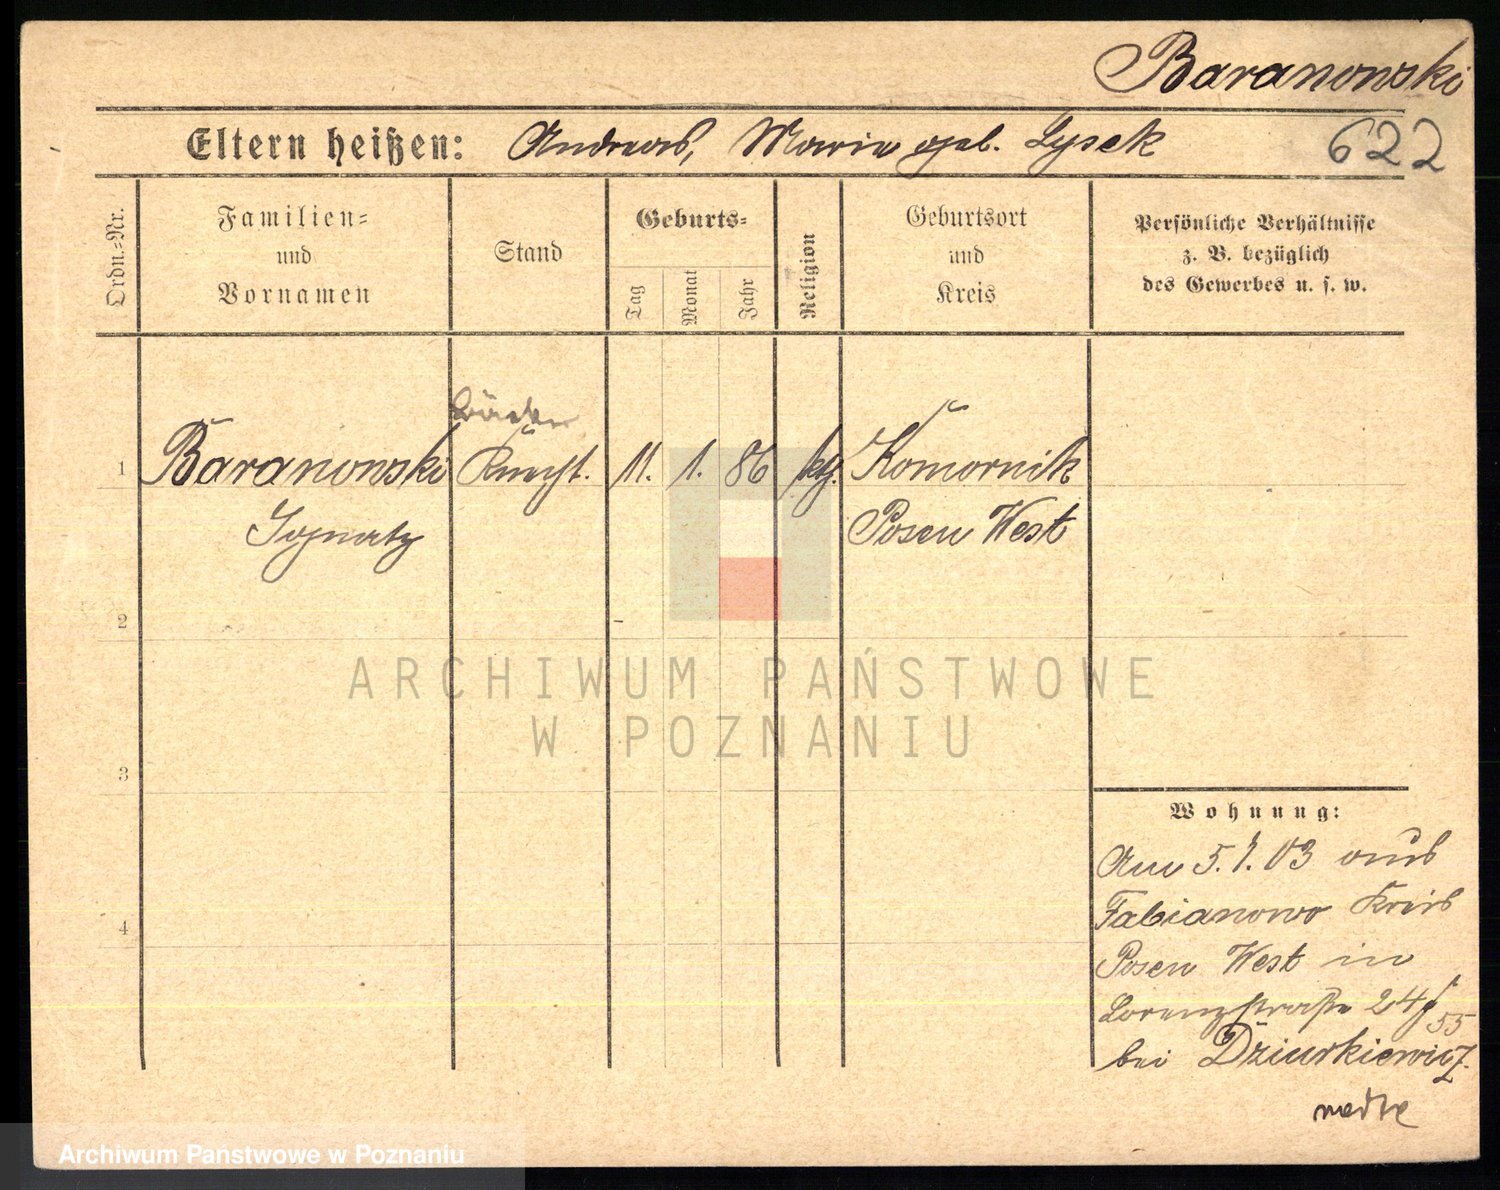 Baranowski
Eltern heißen: Andreas, Marie geb. Lysek
622
Ordn.=Nr.
Familien=
und
Vornamen
Stand
Geburts=
Tag
Monat
Jahr
Religion
Geburtsort
und
Kreis
Persönliche Verhältnisse
z. B. bezüglich
des Gewerbes u. s. w.
1
Baranowski
Knecht.
11.
1.
86
kth.
Komornik
Ignatz
Posen West
2
3
4
ARCHIWUM PAŃSTWOWE
W POZNANIU
Wohnung:
Am 5.1.03 aus
Fabianowo Kreis
Posen West in
Lorenzstraße 24
55
bei Dziurkiewicz
Archiwum Państwowe w Poznaniu